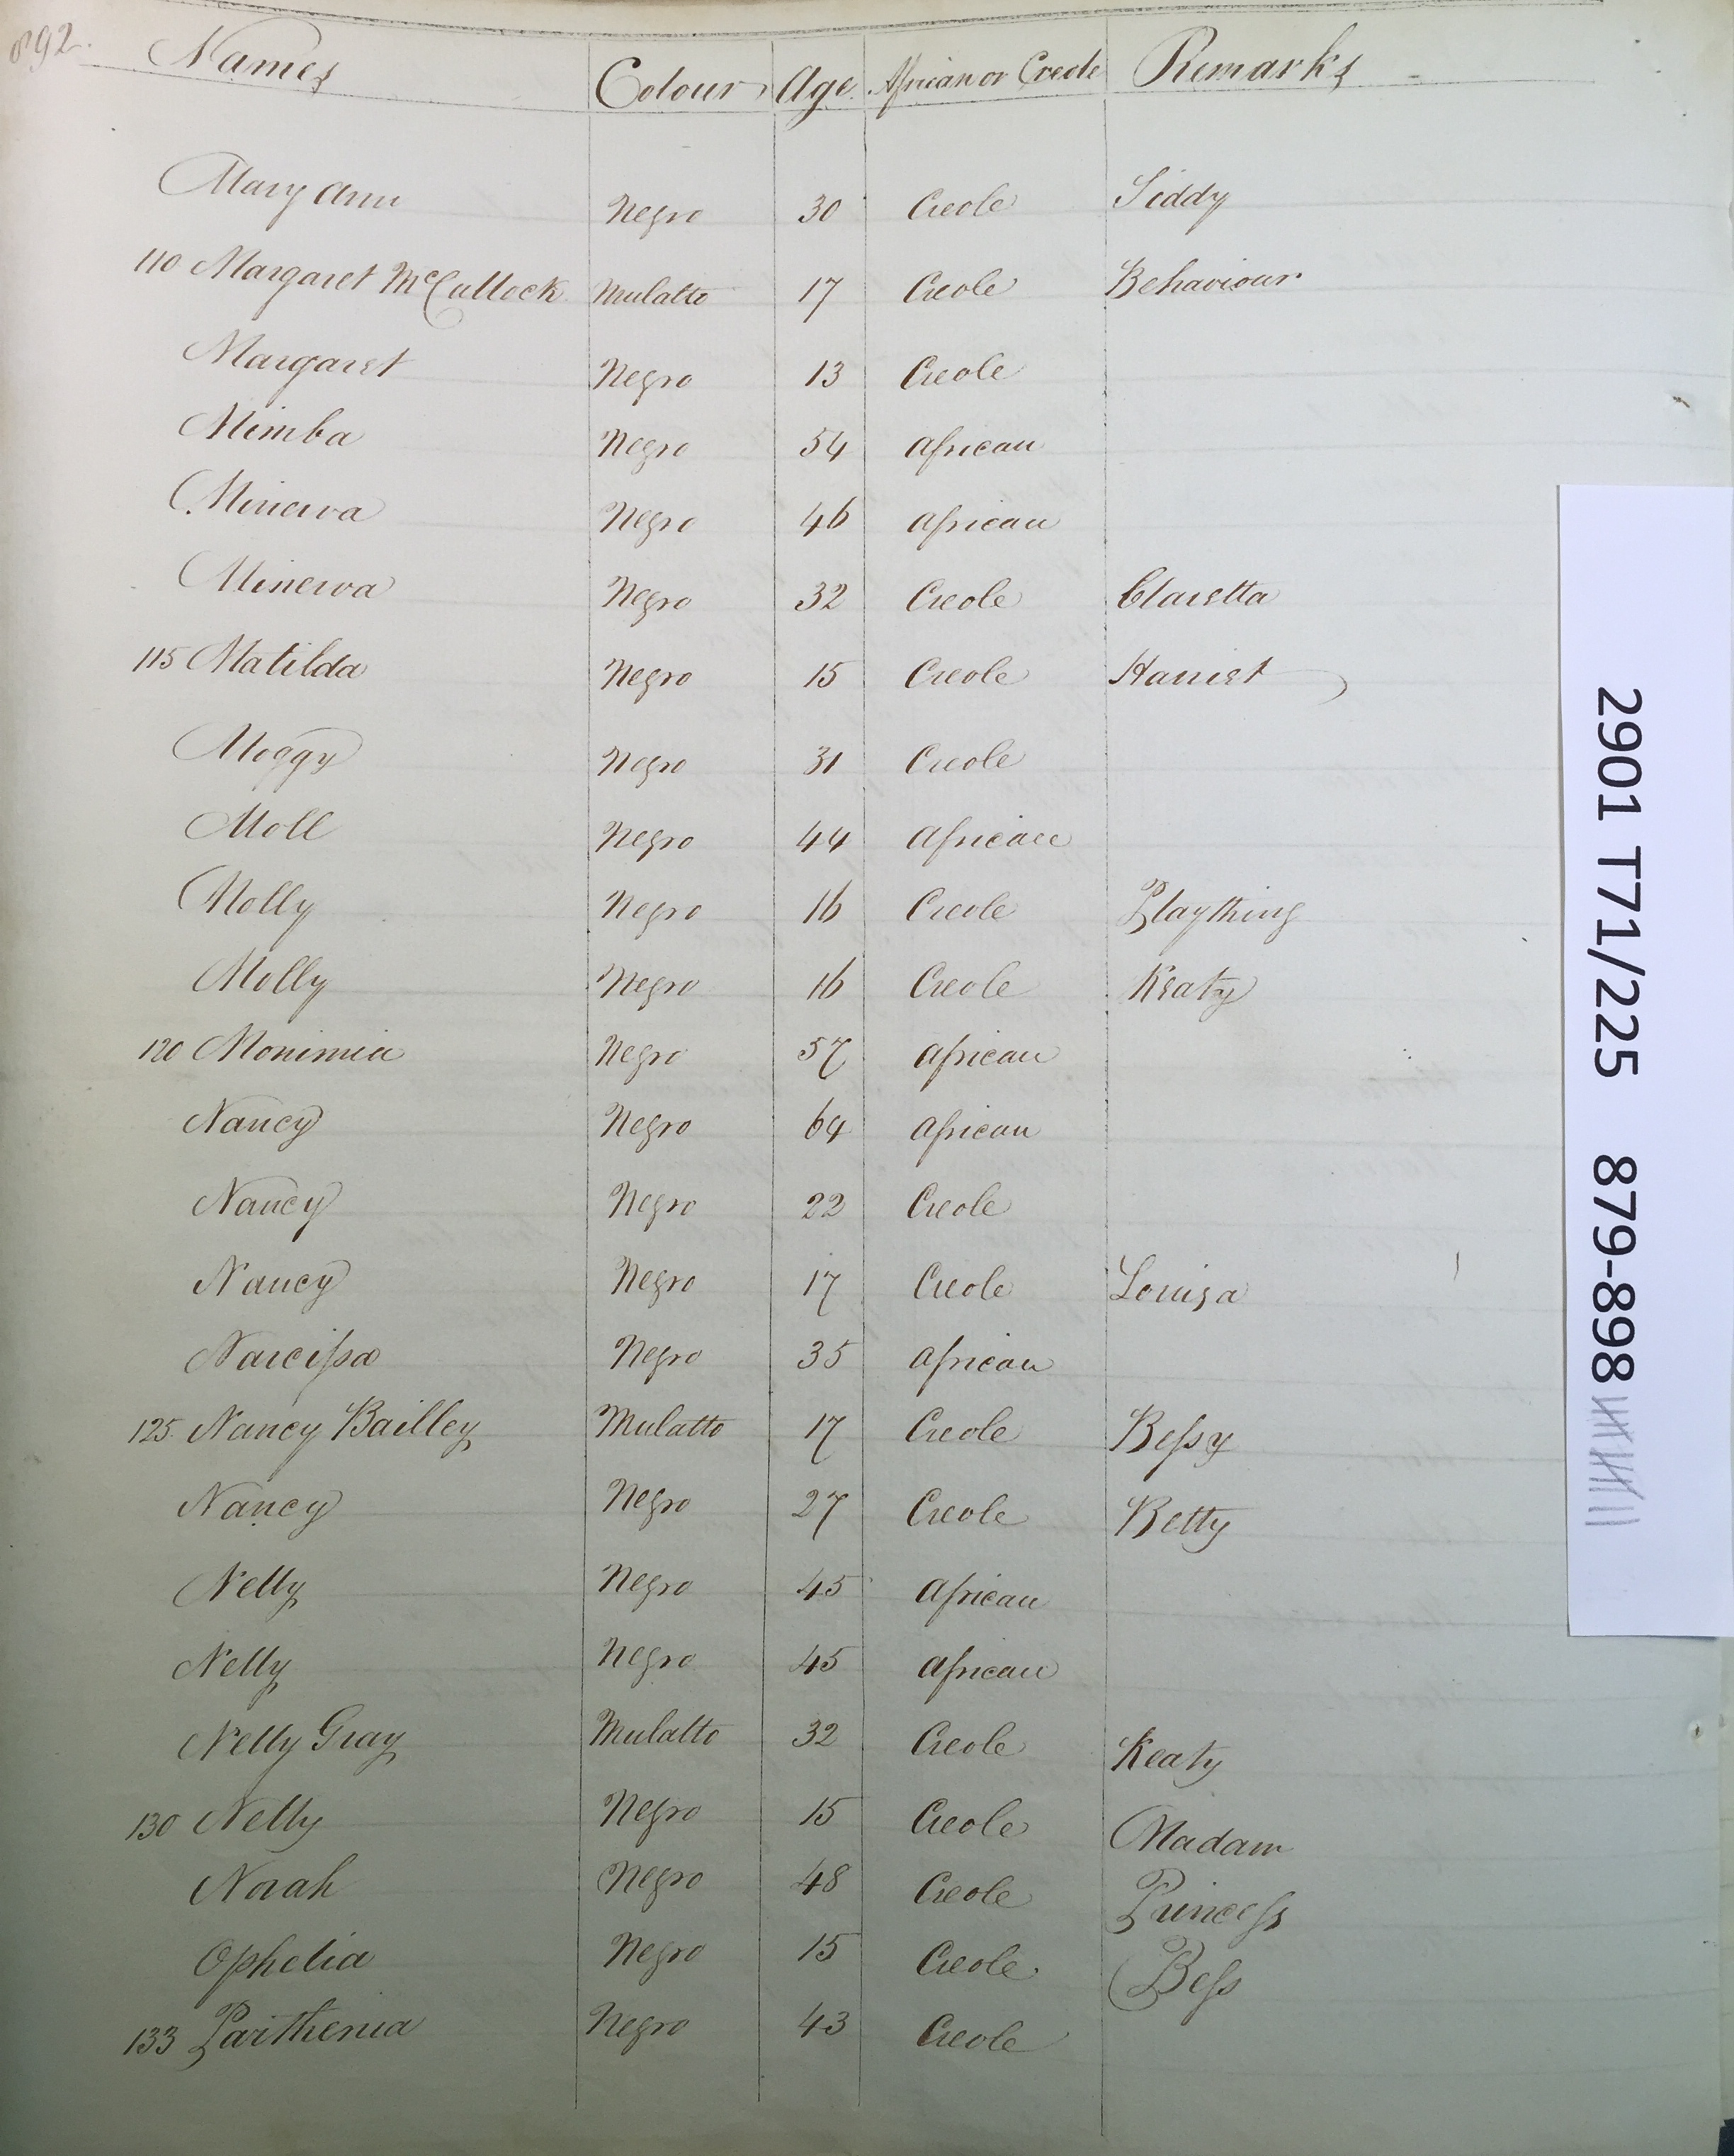 892.
Names Colour Age African or Creole Remarks
Mary Ann Negro 30 Creole Siddy
110 Margaret McCullock Mulatto 17 Creole Behaviour
Margaret Negro 13 Creole
Mimba Negro 54 African
Minerva Negro 46 African
Minerva Negro 32 Creole Claretta
115 Matilda Negro 15 Creole Harriet
Moggy Negro 31 Creole
Moll Negro 44 African
Molly Negro 16 Creole Plaything
Molly Negro 16 Creole Keaty
120 Monimia Negro 57 African
Nancy Negro 64 African
Nancy Negro 22 Creole
Nancy Negro 17 Creole Louisa
Narcissa Negro 35 African
125 Nancy Bailley Mulatto 17 Creole Bessy
Nancy Negro 27 Creole Betty
Nelly Negro 45 African
Nelly Negro 45 African
Nelly Gray Mulatto 32 Creole Keaty
130 Nelly Negro 15 Creole Madam
Norah Negro 48 Creole Princess
Ophelia Negro 15 Creole Bess
133 Parthenia Negro 43 Creole
2901 T71/225 879-898